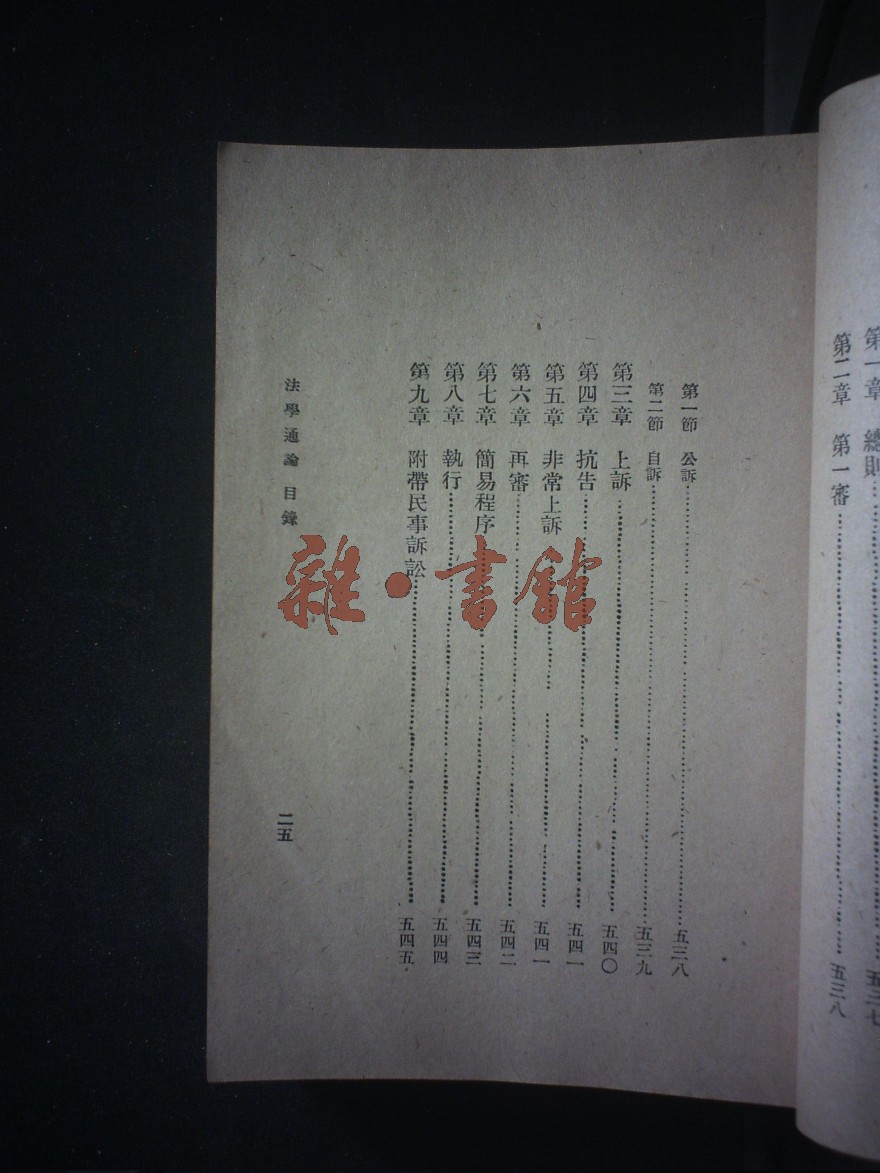 第一章 總則……五三七
第二章 第一審……五三八
第一節 公訴……五三八
第二節 自訴……五三九
第三章 上訴……五四〇
第四章 抗告……五四一
第五章 非常上訴……五四一
第六章 再審……五四二
第七章 簡易程序……五四三
第八章 執行……五四四
第九章 附帶民事訴訟……五四五
法學通論 目錄 二五
雜·書館